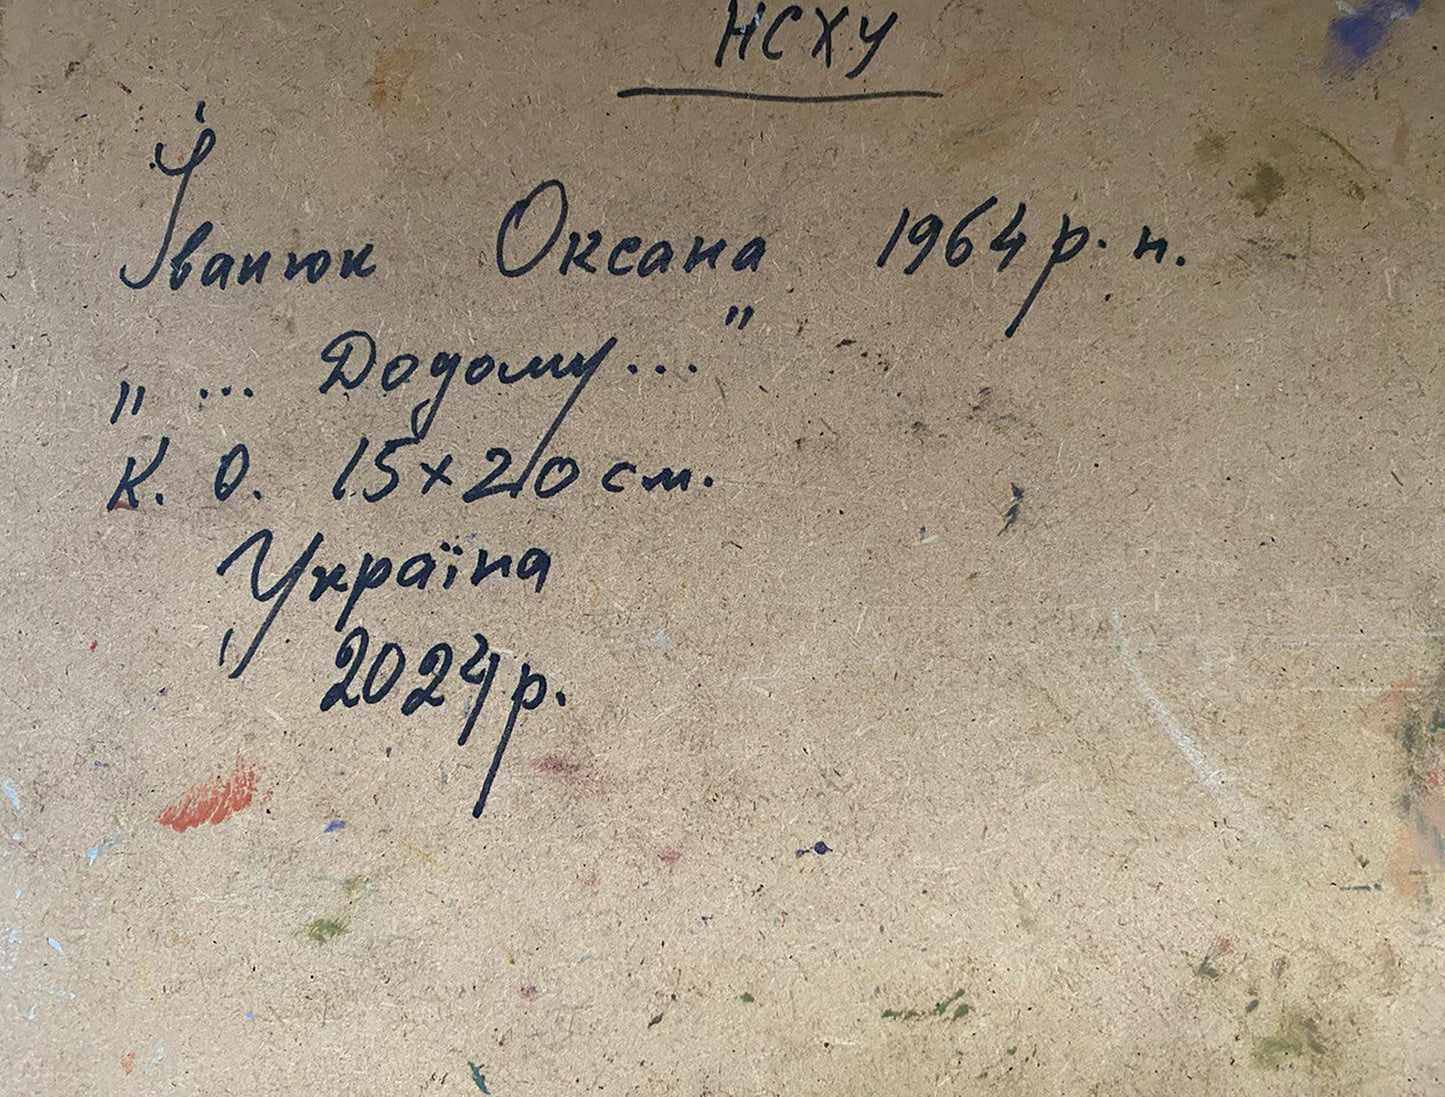 НСХУ
Іванюк Оксана 1964 р. н.
„ ... Додому ... "
К. О. 15×20 см.
Україна
2024 р.